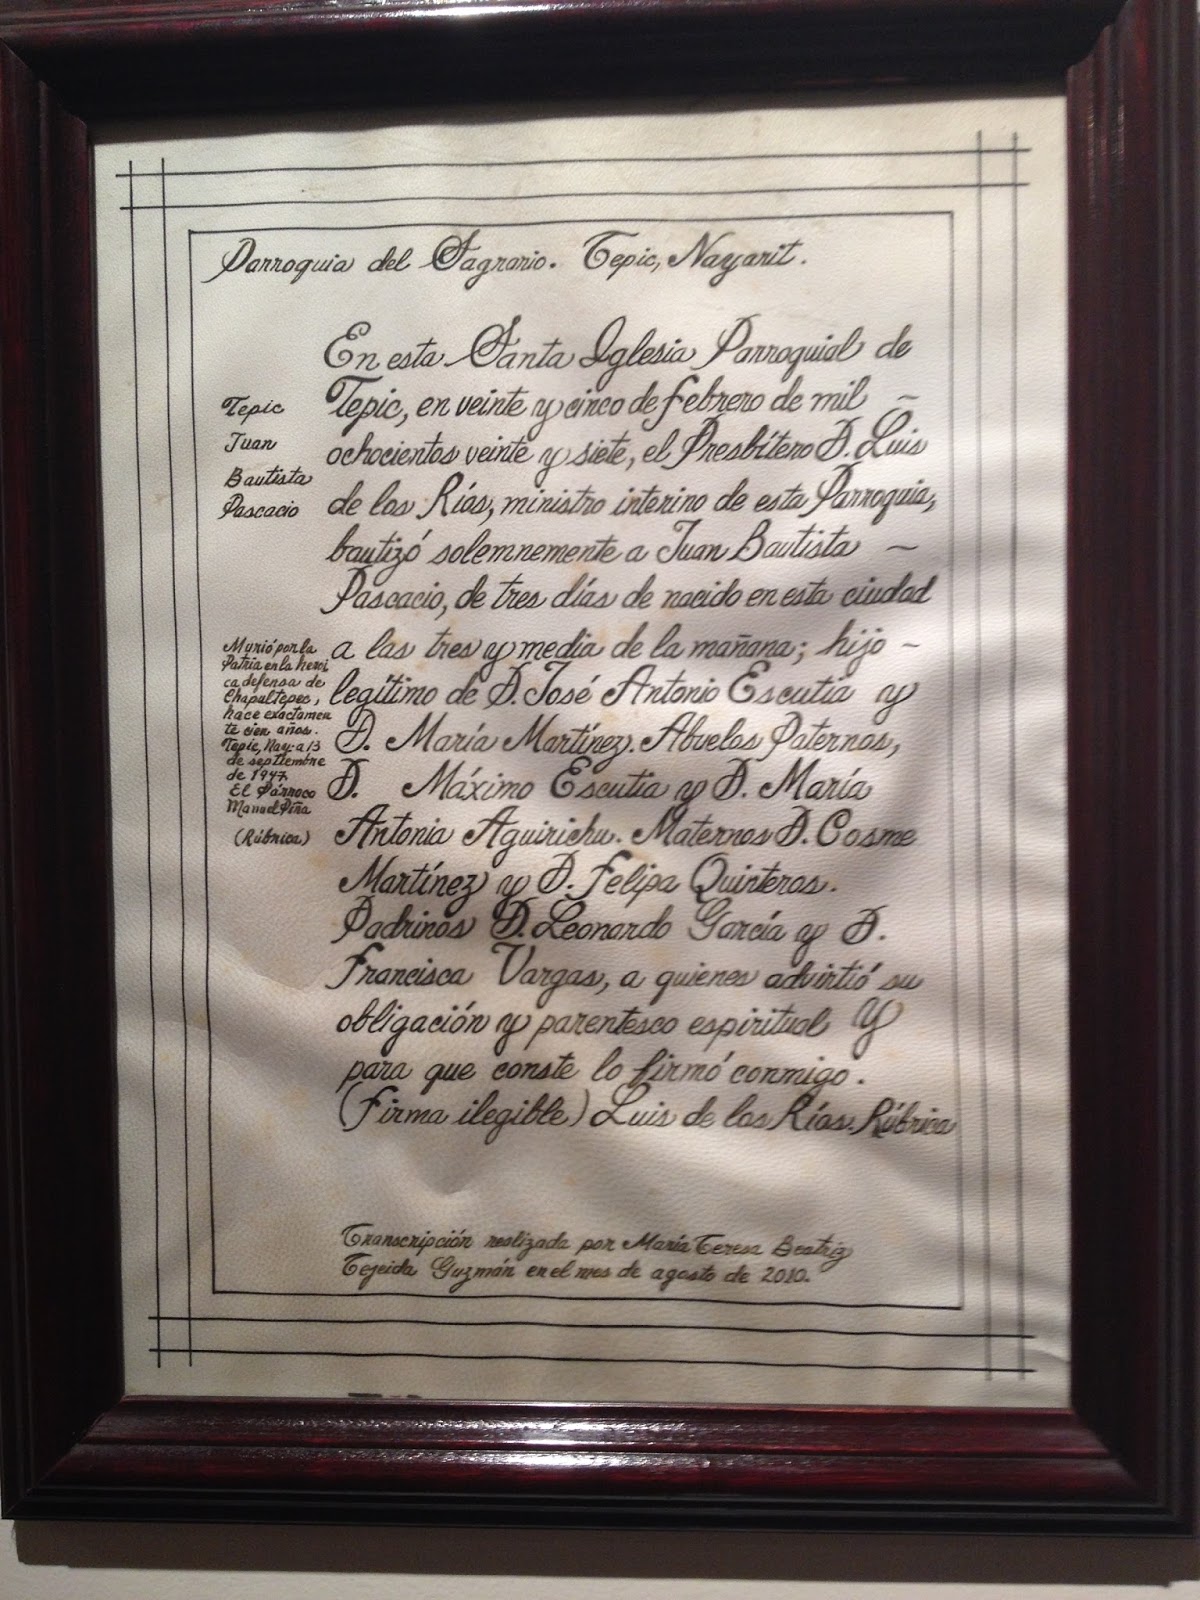 Parroquia del Sagrario. Tepic, Nayarit.
Tepic
Juan
Bautista
Pascacio
Murió por la
Patria en la heroi
ca defensa de
Chapultepec,
hace exactamen
te cien años.
Tepic, Nay. a 13
de septiembre
de 1947
El Párroco
Manuel Piña
(Rúbrica)
En esta Santa Iglesia Parroquial de
Tepic, en veinte y cinco de febrero de mil ~
ochocientos veinte y siete, el Presbítero D. Luis
de los Ríos, ministro interino de esta Parroquia,
bautizó solemnemente a Juan Bautista ~
Pascacio, de tres días de nacido en esta ciudad
a las tres y media de la mañana; hijo ~
legítimo de D. José Antonio Escutia y
D. María Martínez. Abuelos Paternos,
D. Máximo Escutia y D. María
Antonia Aguirichu. Maternos D. Cosme
Martínez y D. Felipa Quinteros.
Padrinos D. Leonardo García y D.
Francisca Vargas, a quienes advirtió su
obligación y parentesco espiritual y
para que conste lo firmó conmigo.
(Firma ilegible) Luis de los Ríos. Rúbrica
Transcripción realizada por María Teresa Beatriz
Tejeida Guzmán en el mes de agosto de 2010.